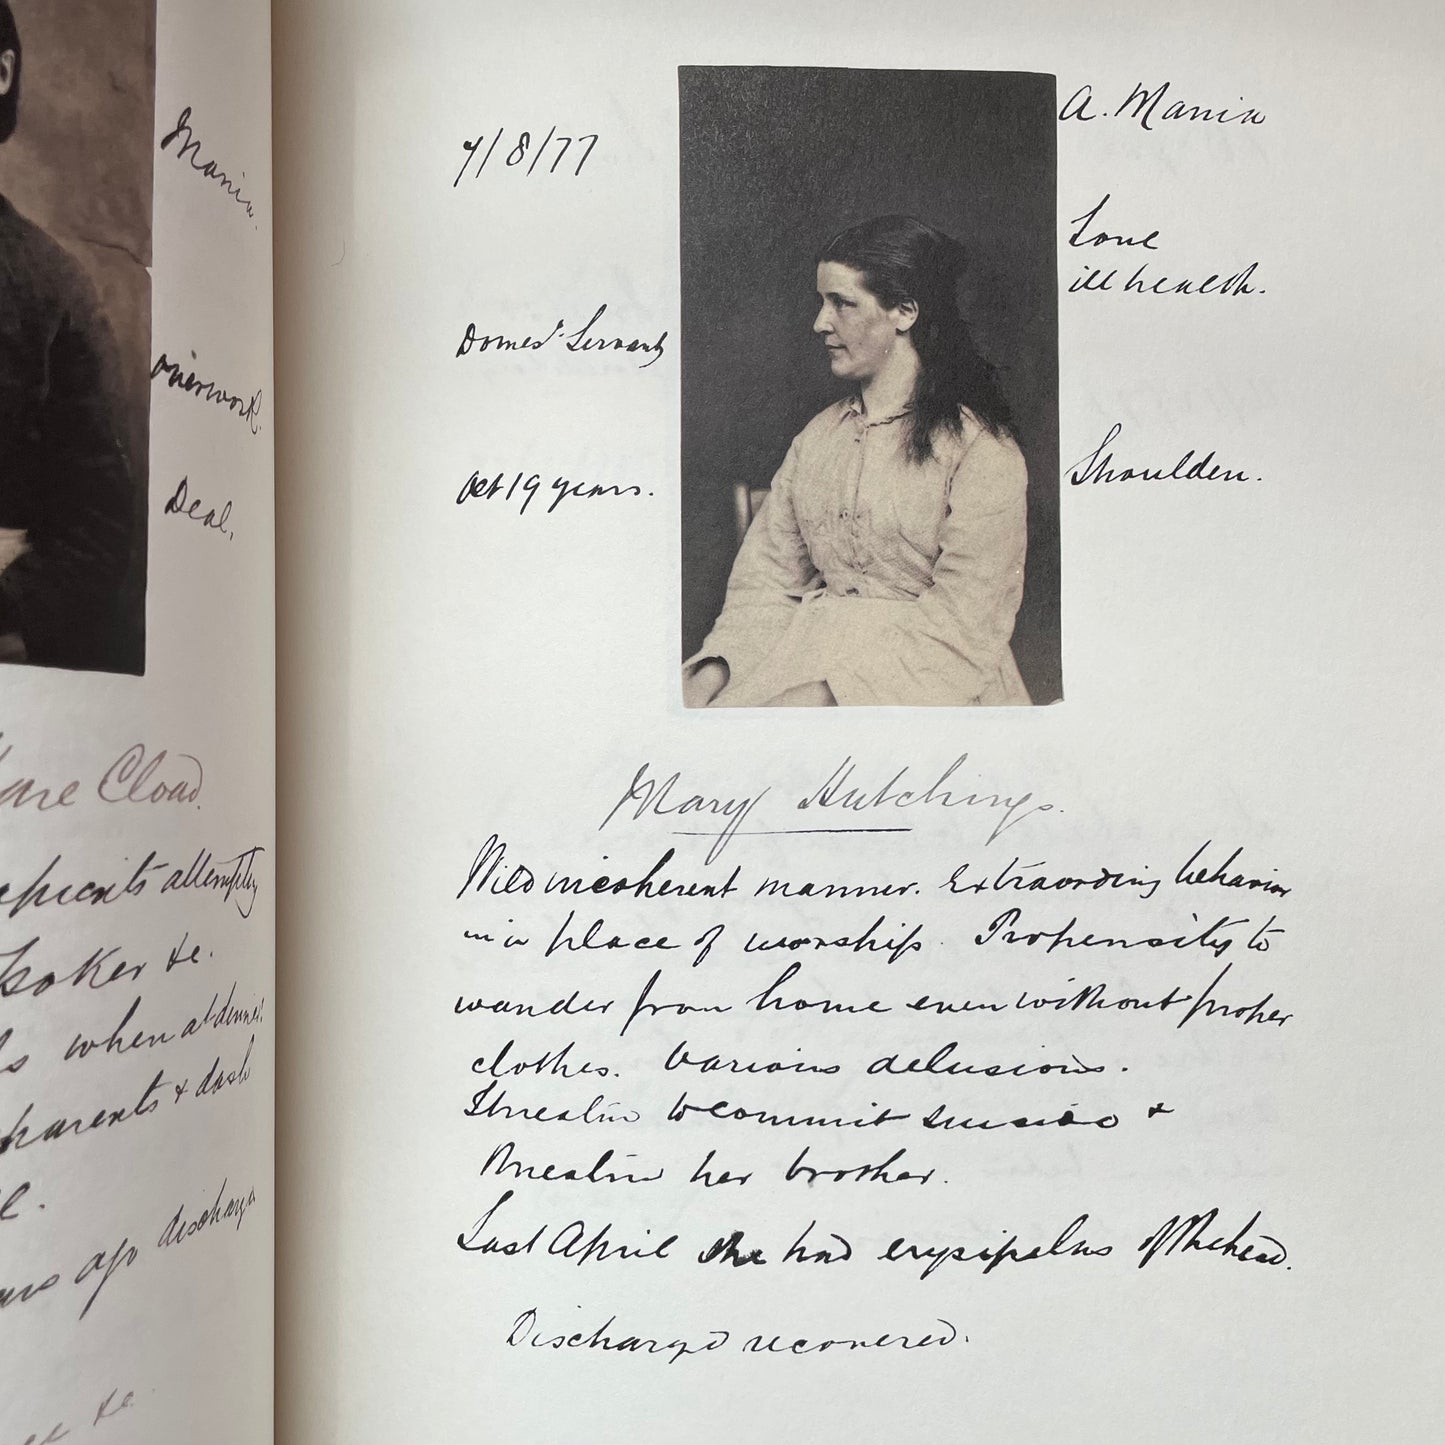 Mania.
overwork.
Deal.
Cload.
attempting
&c.
when at dinner
parents & dash
ago discharged
&c
7/8/77
A. Mania
Love
ill health.
Domes^t. Servant
Oct 19 years.
Sholden.
Mary Hutchings.
Wild incoherent manner. Extraording behavior
in a place of worship. Propensity to
wander from home even without proper
clothes. Various delusions.
Threatens to commit suicide &
threatens her brother.
Last April she had erysipelas of the head.
Discharged recovered.